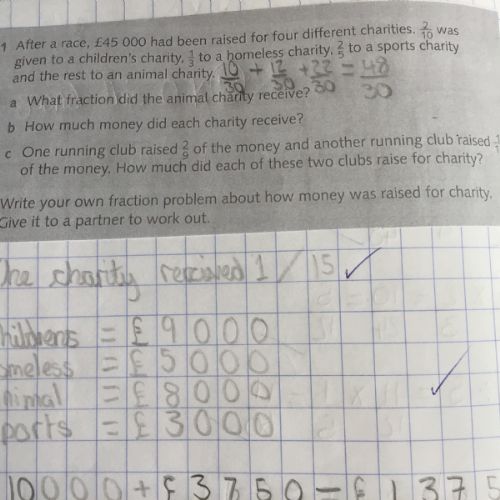 1 After a race, £45 000 had been raised for four different charities. 2/10 was
given to a children's charity, 1/3 to a homeless charity, 2/5 to a sports charity
and the rest to an animal charity. 10/30 + 12/30 + 22/30 = 48/30
a What fraction did the animal charity receive?
b How much money did each charity receive?
c One running club raised 2/5 of the money and another running club raised
of the money. How much did each of these two clubs raise for charity?
Write your own fraction problem about how money was raised for charity.
Give it to a partner to work out.
The charity received 1/15 ✓
hildrens = £9000
omeless = £5000
nimal = £8000 ✓
ports = £3000
10000 + £3750 = £1375